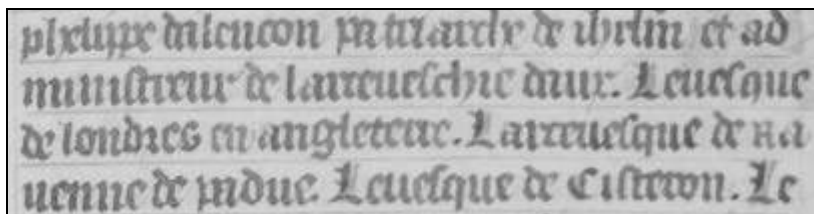 phelippe dalencon patriarche de iherlm et ad
ministreur de larceueschie daux. Leuesque
de londres en angleterre. Larceuesque de Ra
uenne de padue. Leuesque de Cisteron. Le